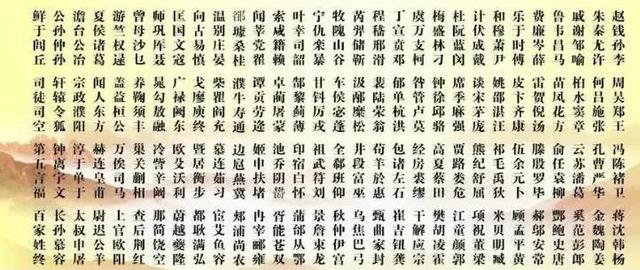 赵钱孙李 周吴郑王 冯陈褚卫 蒋沈韩杨
朱秦尤许 何吕施张 孔曹严华 金魏陶姜
戚谢邹喻 柏水窦章 云苏潘葛 奚范彭郎
鲁韦昌马 苗凤花方 俞任袁柳 酆鲍史唐
费廉岑薛 雷贺倪汤 滕殷罗毕 郝邬安常
乐于时傅 皮卞齐康 伍余元卜 顾孟平黄
和穆萧尹 姚邵湛汪 祁毛禹狄 米贝明臧
计伏成戴 谈宋茅庞 熊纪舒屈 项祝董梁
杜阮蓝闵 席季麻强 贾路娄危 江童颜郭
梅盛林刁 钟徐邱骆 高夏蔡田 樊胡凌霍
虞万支柯 昝管卢莫 经房裘缪 干解应宗
丁宣贲邓 郁单杭洪 包诸左石 崔吉钮龚
程嵇邢滑 裴陆荣翁 荀羊於惠 甄曲家封
芮羿储靳 汲邴糜松 井段富巫 乌焦巴弓
牧隗山谷 车侯宓蓬 全郗班仰 秋仲伊宫
宁仇栾暴 甘钭厉戎 祖武符刘 景詹束龙
叶幸司韶 郜黎蓟薄 印宿白怀 蒲邰从鄂
索咸籍赖 卓蔺屠蒙 池乔阴鬱 胥能苍双
闻莘党翟 谭贡劳逄 姬申扶堵 冉宰郦雍
郤璩桑桂 濮牛寿通 边扈燕冀 郏浦尚农
温别庄晏 柴瞿阎充 慕连茹习 宦艾鱼容
向古易慎 戈廖庾终 暨居衡步 都耿满弘
匡国文寇 广禄阙东 欧殳沃利 蔚越夔隆
师巩厍聂 晁勾敖融 冷訾辛阚 那简饶空
曾毋沙乜 养鞠须丰 巢关蒯相 查后荆红
游竺权逯 盖益桓公 万俟司马 上官欧阳
夏侯诸葛 闻人东方 赫连皇甫 尉迟公羊
澹台公冶 宗政濮阳 淳于单于 太叔申屠
公孙仲孙 轩辕令狐 钟离宇文 长孙慕容
鲜于闾丘 司徒司空 第五言福 百家姓终